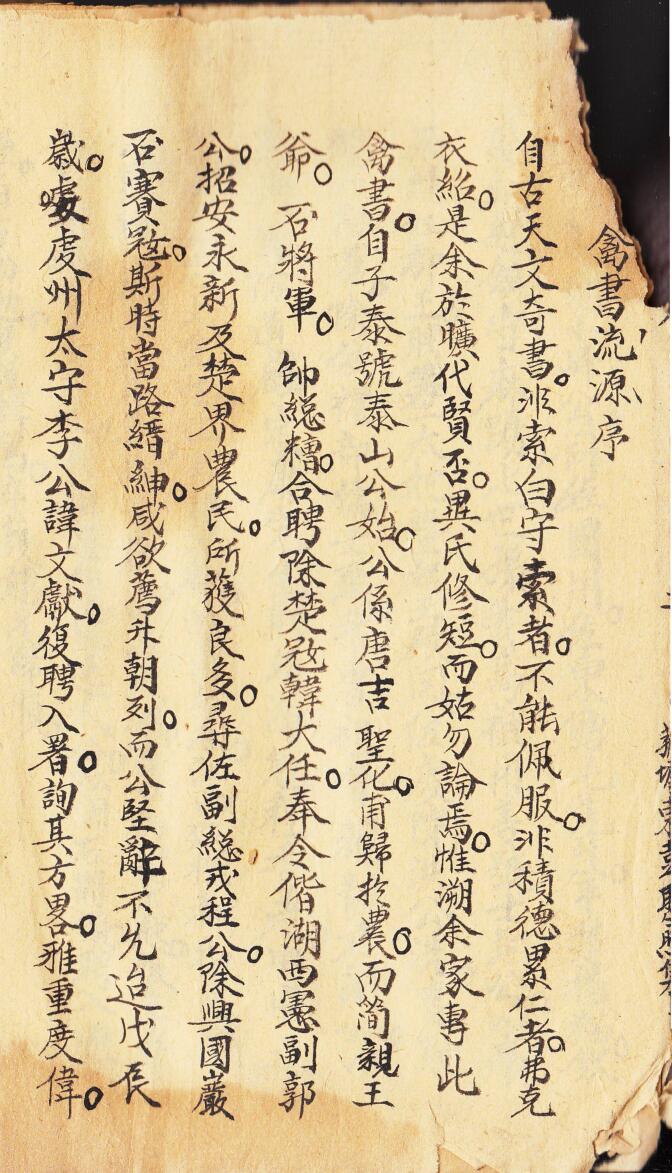 禽書流源序
自古天文奇書。非索白守素者。不能佩服。非積德累仁者。弗克
衣紹。是余於曠代賢否。異氏修短。而姑勿論焉。惟溯余家專此
禽書。自子泰號泰山公始。公係唐吉聖化甫歸於農。而简親王
爺。石將軍。帥總糟。合聘除楚寇韓大任。奉令偕湖西憲副郭
公。招安永新及楚界農民。所獲良多。尋佐副總戎程公。除興國巖
石賽寇。斯時當路縉紳。咸欲薦升朝列。而公堅辭不允迨戊辰
歲。虔州太守李公諱文獻。復聘入署。詢其方畧。雅重度偉。